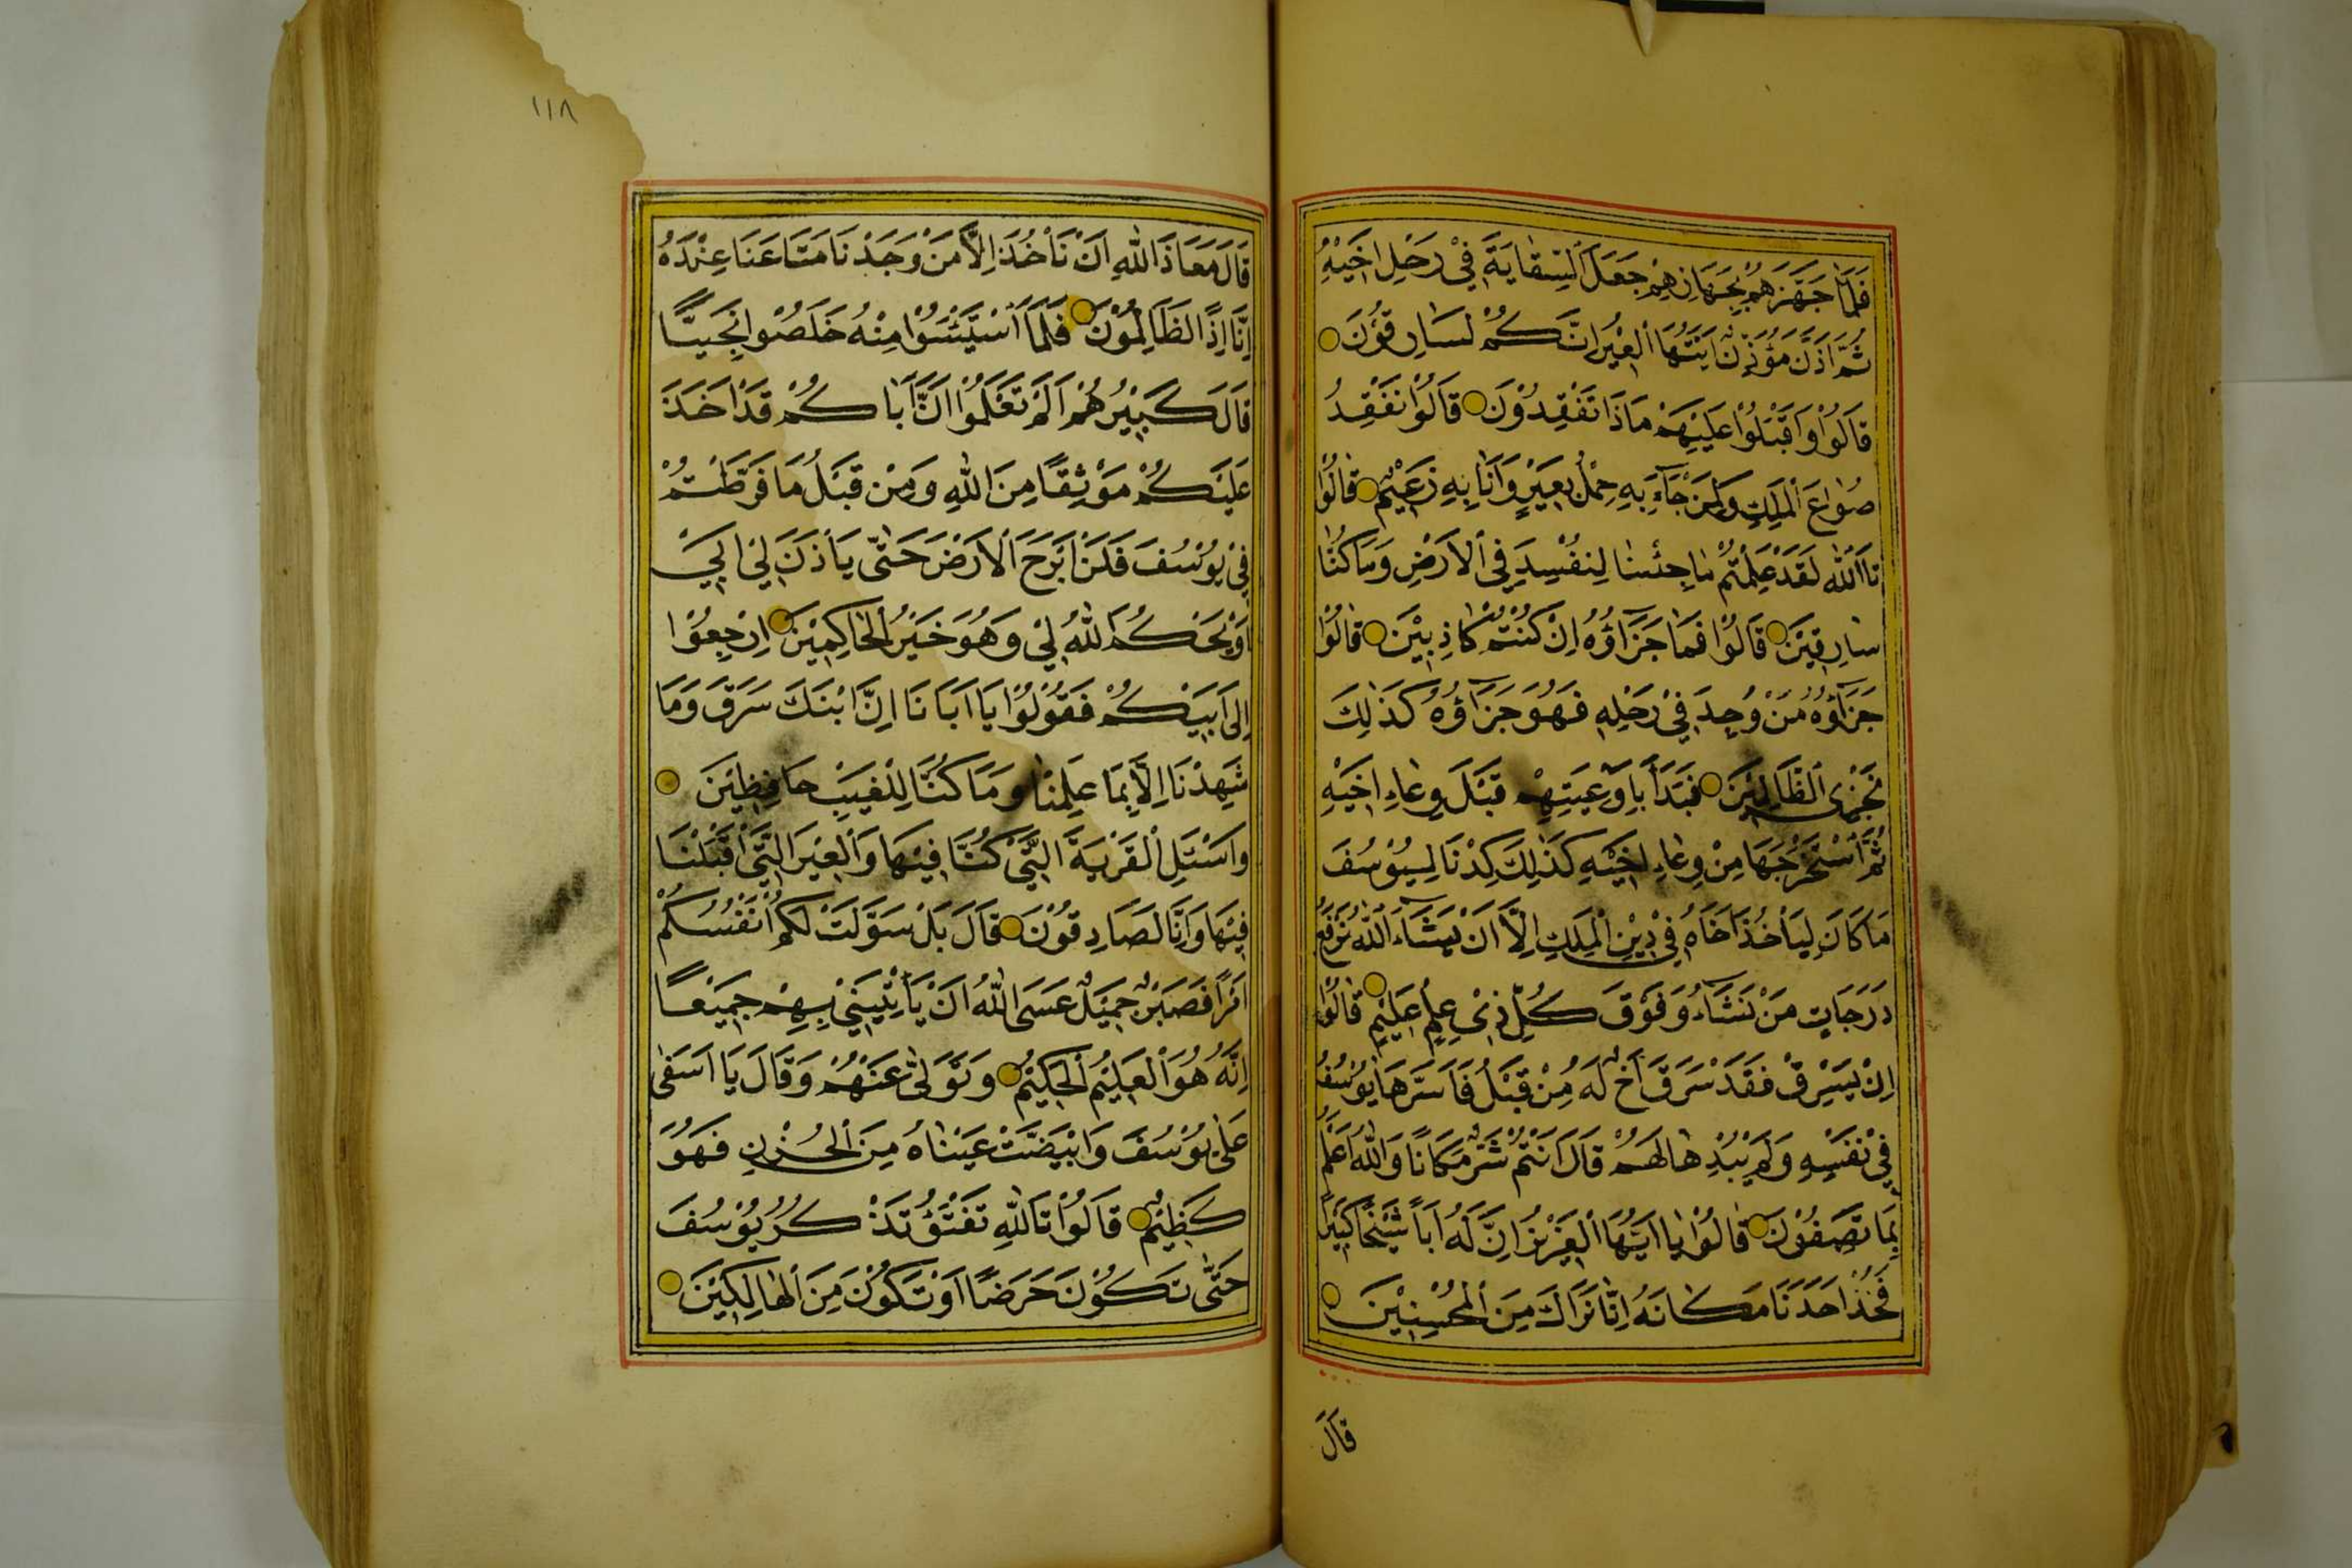 فَلَمَّا جَهَّزَهُمْ بِجَهَازِهِمْ جَعَلَ السِّقَايَةَ فِي رَحْلِ اَخِيْهِ
ثُمَّ اَذَّنَ مُؤَذِّنٌ اَيَّتُهَا الْعِيْرُ اِنَّكُمْ لَسَارِقُوْنَ
قَالُوْا وَاَقْبَلُوْا عَلَيْهِمْ مَاذَا تَفْقِدُوْنَ قَالُوْا نَفْقِدُ
صُوَاعَ الْمَلِكِ وَلِمَنْ جَآءَ بِهِ حِمْلُ بَعِيْرٍ وَاَنَا بِهِ زَعِيْمٌ قَالُوْا
تَاَاللّٰهِ لَقَدْ عَلِمْتُمْ مَا جِئْنَا لِنُفْسِدَ فِي الْاَرْضِ وَمَا كُنَّا
سَارِقِيْنَ قَالُوْا فَمَا جَزَآؤُهُ اِنْ كُنْتُمْ كَاذِبِيْنَ قَالُوْا
جَزَآؤُهُ مَنْ وُجِدَ فِيْ رَحْلِهِ فَهُوَ جَزَآؤُهُ كَذٰلِكَ
نَجْزِى الظَّالِمِيْنَ فَبَدَأَ بِاَوْعِيَتِهِمْ قَبْلَ وِعَاءِ اَخِيْهِ
ثُمَّ اسْتَخْرَجَهَا مِنْ وِعَاءِ اَخِيْهِ كَذٰلِكَ كِدْنَا لِيُوْسُفَ
مَا كَانَ لِيَأْخُذَ اَخَاهُ فِيْ دِيْنِ الْمَلِكِ اِلَّا اَنْ يَشَآءَ اللّٰهُ نَرْفَعُ
دَرَجَاتٍ مَنْ نَشَآءُ وَفَوْقَ كُلِّ ذِىْ عِلْمٍ عَلِيْمٌ قَالُوْا
اِنْ يَسْرِقْ فَقَدْ سَرَقَ اَخٌ لَهُ مِنْ قَبْلُ فَاَسَرَّهَا يُوْسُفُ
فِيْ نَفْسِهِ وَلَمْ يُبْدِهَا لَهُمْ قَالَ اَنْتُمْ شَرٌّ مَكَانًا وَاللّٰهُ اَعْلَمُ
بِمَا تَصِفُوْنَ قَالُوْا يَا اَيُّهَا الْعَزِيْزُ اِنَّ لَهُ اَبًا شَيْخًا كَبِيْرًا
فَخُذْ اَحَدَنَا مَكَانَهُ اِنَّا نَرَاكَ مِنَ الْمُحْسِنِيْنَ
قَالَ
١١٨
قَالَ مَعَاذَ اللّٰهِ اَنْ نَأْخُذَ اِلَّا مَنْ وَجَدْنَا مَتَاعَنَا عِنْدَهُ
اِنَّا اِذًا لَظَالِمُوْنَ فَلَمَّا اسْتَيْئَسُوْا مِنْهُ خَلَصُوْا نَجِيًّا
قَالَ كَبِيْرُهُمْ اَلَمْ تَعْلَمُوْا اَنَّ اَبَاكُمْ قَدْ اَخَذَ
عَلَيْكُمْ مَوْثِقًا مِنَ اللّٰهِ وَمِنْ قَبْلُ مَا فَرَّطْتُمْ
فِيْ يُوْسُفَ فَلَنْ اَبْرَحَ الْاَرْضَ حَتّٰى يَأْذَنَ لِيْ اَبِيْ
اَوْ يَحْكُمَ اللّٰهُ لِيْ وَهُوَ خَيْرُ الْحَاكِمِيْنَ اِرْجِعُوْا
اِلَى اَبِيْكُمْ فَقُوْلُوْا يَا اَبَانَا اِنَّ ابْنَكَ سَرَقَ وَمَا
شَهِدْنَا اِلَّا بِمَا عَلِمْنَا وَمَا كُنَّا لِلْغَيْبِ حَافِظِيْنَ
وَاسْئَلِ الْقَرْيَةَ الَّتِيْ كُنَّا فِيْهَا وَالْعِيْرَ الَّتِيْ اَقْبَلْنَا
فِيْهَا وَاِنَّا لَصَادِقُوْنَ قَالَ بَلْ سَوَّلَتْ لَكُمْ اَنْفُسُكُمْ
اَمْرًا فَصَبْرٌ جَمِيْلٌ عَسَى اللّٰهُ اَنْ يَأْتِيَنِيْ بِهِمْ جَمِيْعًا
اِنَّهُ هُوَ الْعَلِيْمُ الْحَكِيْمُ وَتَوَلّٰى عَنْهُمْ وَقَالَ يَا اَسَفٰى
عَلٰى يُوْسُفَ وَابْيَضَّتْ عَيْنَاهُ مِنَ الْحُزْنِ فَهُوَ
كَظِيْمٌ قَالُوْا تَاللّٰهِ تَفْتَؤُ تَذْكُرُ يُوْسُفَ
حَتّٰى تَكُوْنَ حَرَضًا اَوْ تَكُوْنَ مِنَ الْهَالِكِيْنَ